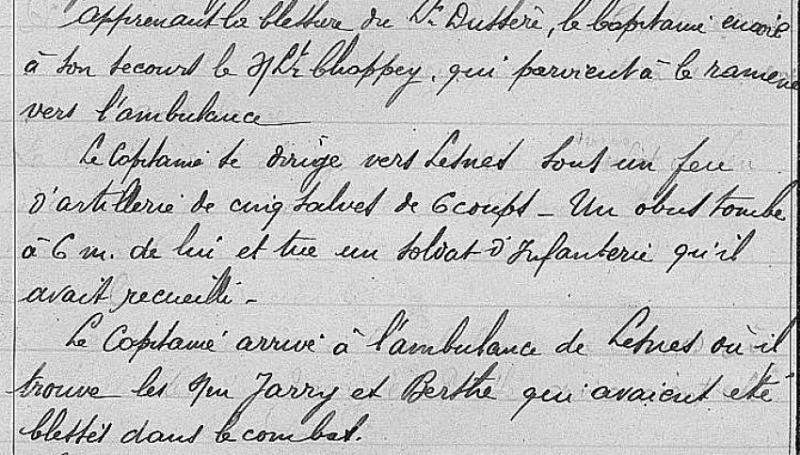 Apprenant la blessure du Dr Dusseré, le Capitaine envoie
à son secours le Chappey, qui parvient à le ramener
vers l'ambulance
Le Capitaine se dirige vers Lesnes sous un feu
d'artillerie de cinq salves de 6 coups - Un obus tombe
à 6 m. de lui et tue un soldat d'Infanterie qu'il
avait recueilli -
Le Capitaine arrive à l'ambulance de Lesnes où il
trouve les Jarry et Berthe qui avaient été
blessés dans le combat.